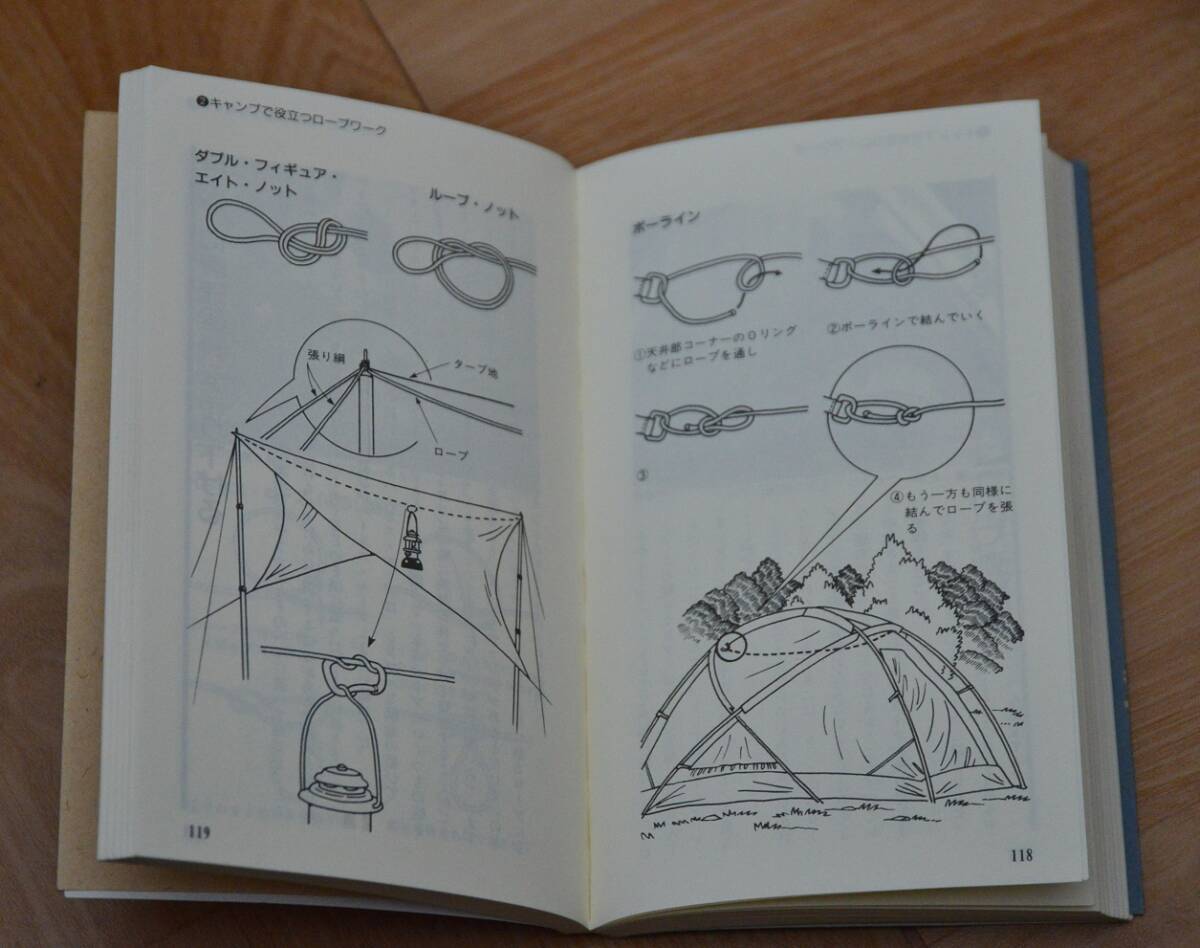 ボーライン
①天井部コーナーのOリング
などにロープを通し
②ボーラインで結んでいく
③
④もう一方も同様に
結んでロープを張
る
118
❷キャンプで役立つロープワーク
ダブル・フィギュア・
エイト・ノット
ループ・ノット
張り綱
タープ地
ロープ
119